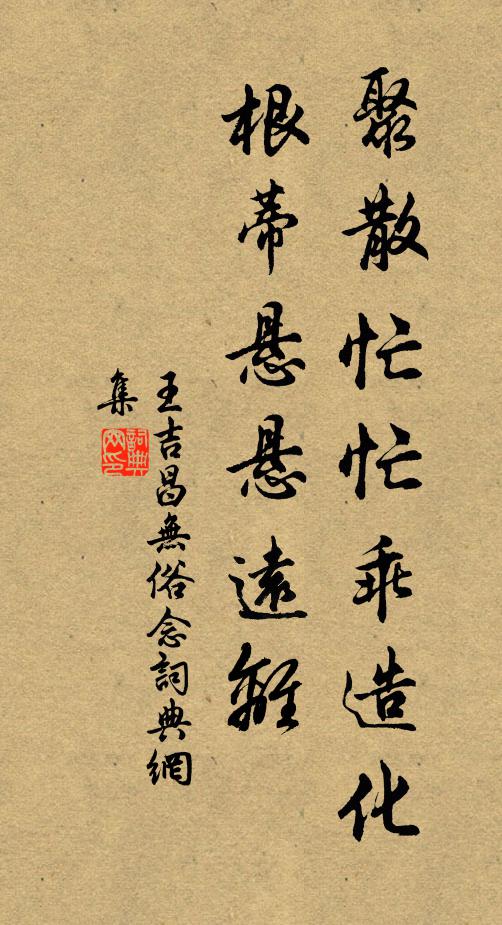 聚散忙忙乖造化
根蒂悬悬遠離
王吉昌無俗念詞典網
集
詞典网印